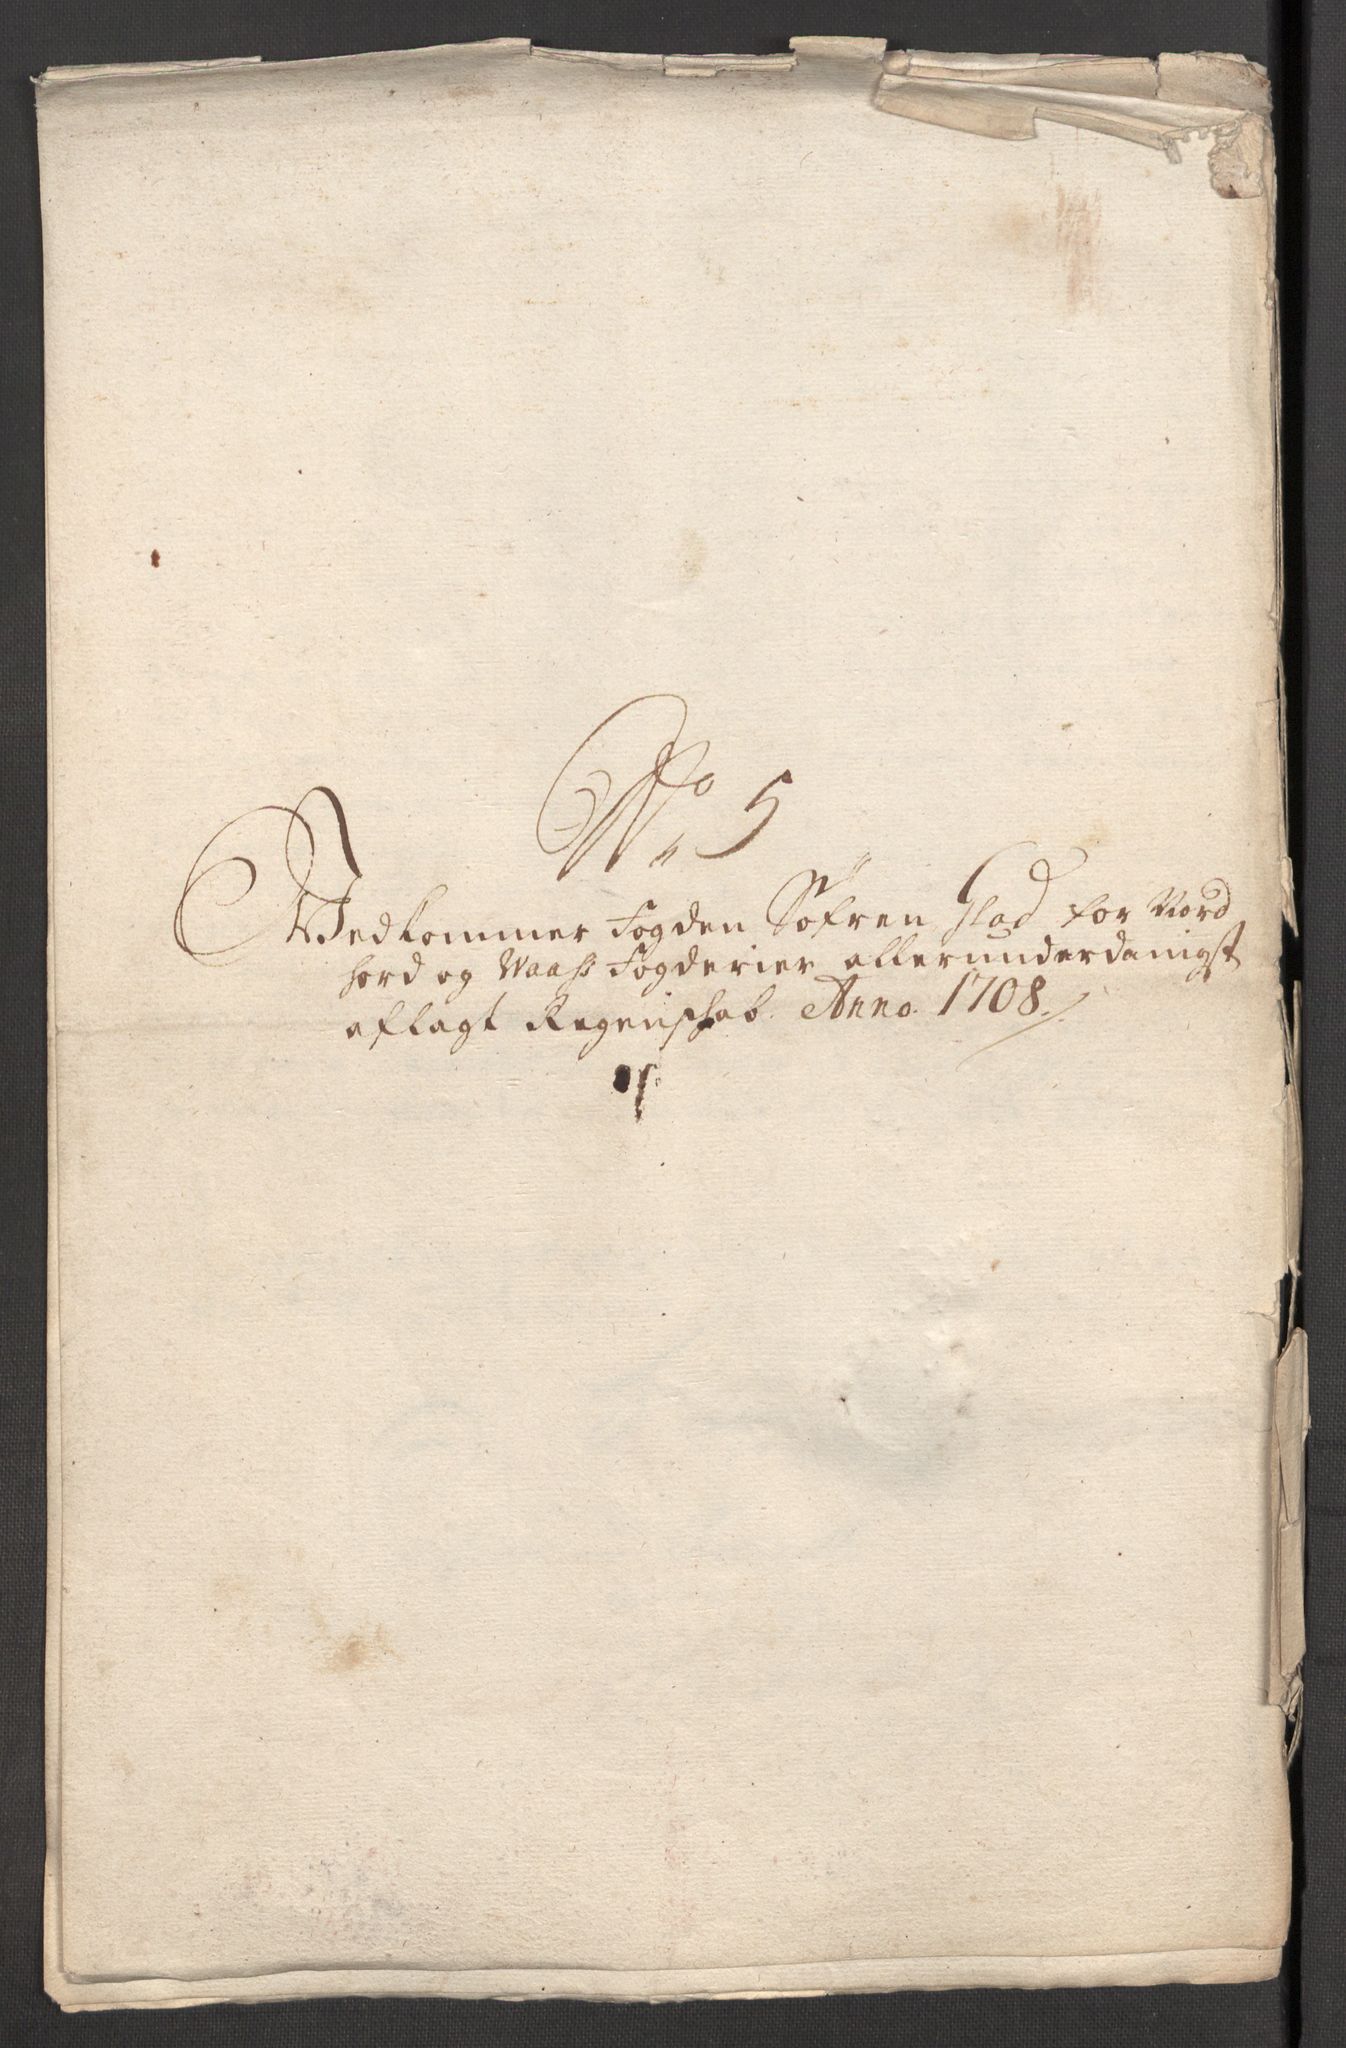 No 5
Vedkommer Fogden Söfren Glad for Nord
hord og Waass Fogderier allerunderdanigst
aflagt Regenskab. Anno. 1708.